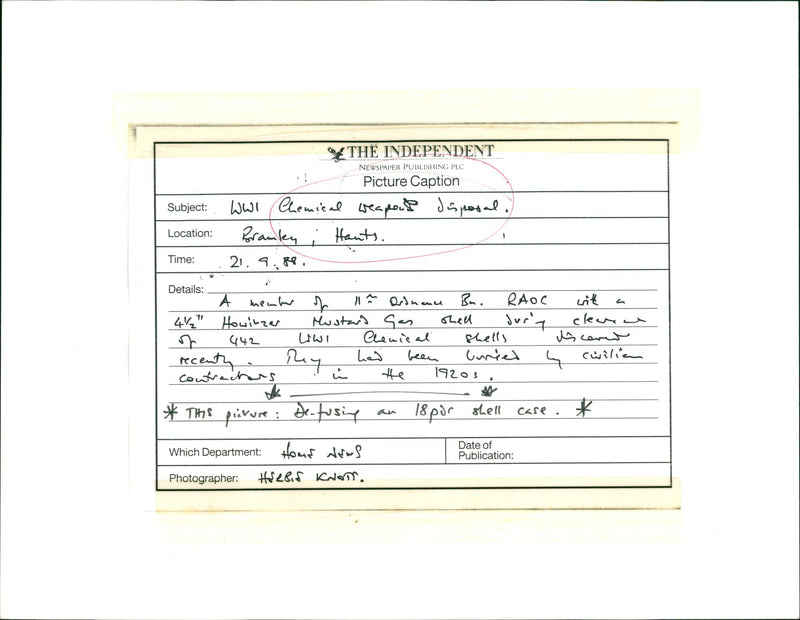 THE INDEPENDENT
NEWSPAPER PUBLISHING PLC
Picture Caption
Subject: WWI Chemical weapons disposal.
Location: Bramley, Hants.
Time: 21.9.88.
Details:
A member of 11th Ordnance Bn. RAOC with a
4½" Howitzer Mustard Gas shell during clearance
of 442 WWI Chemical shells discovered
recently. They had been buried by civilian
contractors in the 1920s.
* THIS picture: De-fusing an 18pdr shell case. *
Which Department: HOME NEWS
Date of
Publication:
Photographer: HERBIE KNOTT.